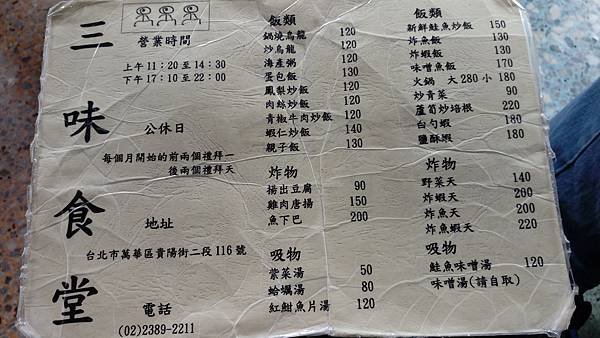 三味食堂
營業時間
上午11：20至14：30
下午17：10至22：00
公休日
每個月開始的前兩個禮拜一
後兩個禮拜天
地址
台北市萬華區貴陽街二段116號
電話
(02)2389-2211
飯類
鍋燒烏龍 120
炒烏龍 120
海產粥 120
蛋包飯 130
鳳梨炒飯 120
肉絲炒飯 120
青椒牛肉炒飯 120
蝦仁炒飯 140
親子飯 130
炸物
揚出豆腐 90
雞肉唐揚 150
魚下巴 200
吸物
紫菜湯 50
蛤蠣湯 80
紅魽魚片湯 120
飯類
新鮮鮭魚炒飯 150
炸魚飯 130
炸蝦飯 130
味噌魚飯 170
火鍋 大280小180
炒青菜 90
蘆筍炒培根 220
白勺蝦 180
鹽酥蝦 180
炸物
野菜天 140
炸蝦天 200
炸魚天 200
炸魚蝦天 220
吸物
鮭魚味噌湯 120
味噌湯(請自取)